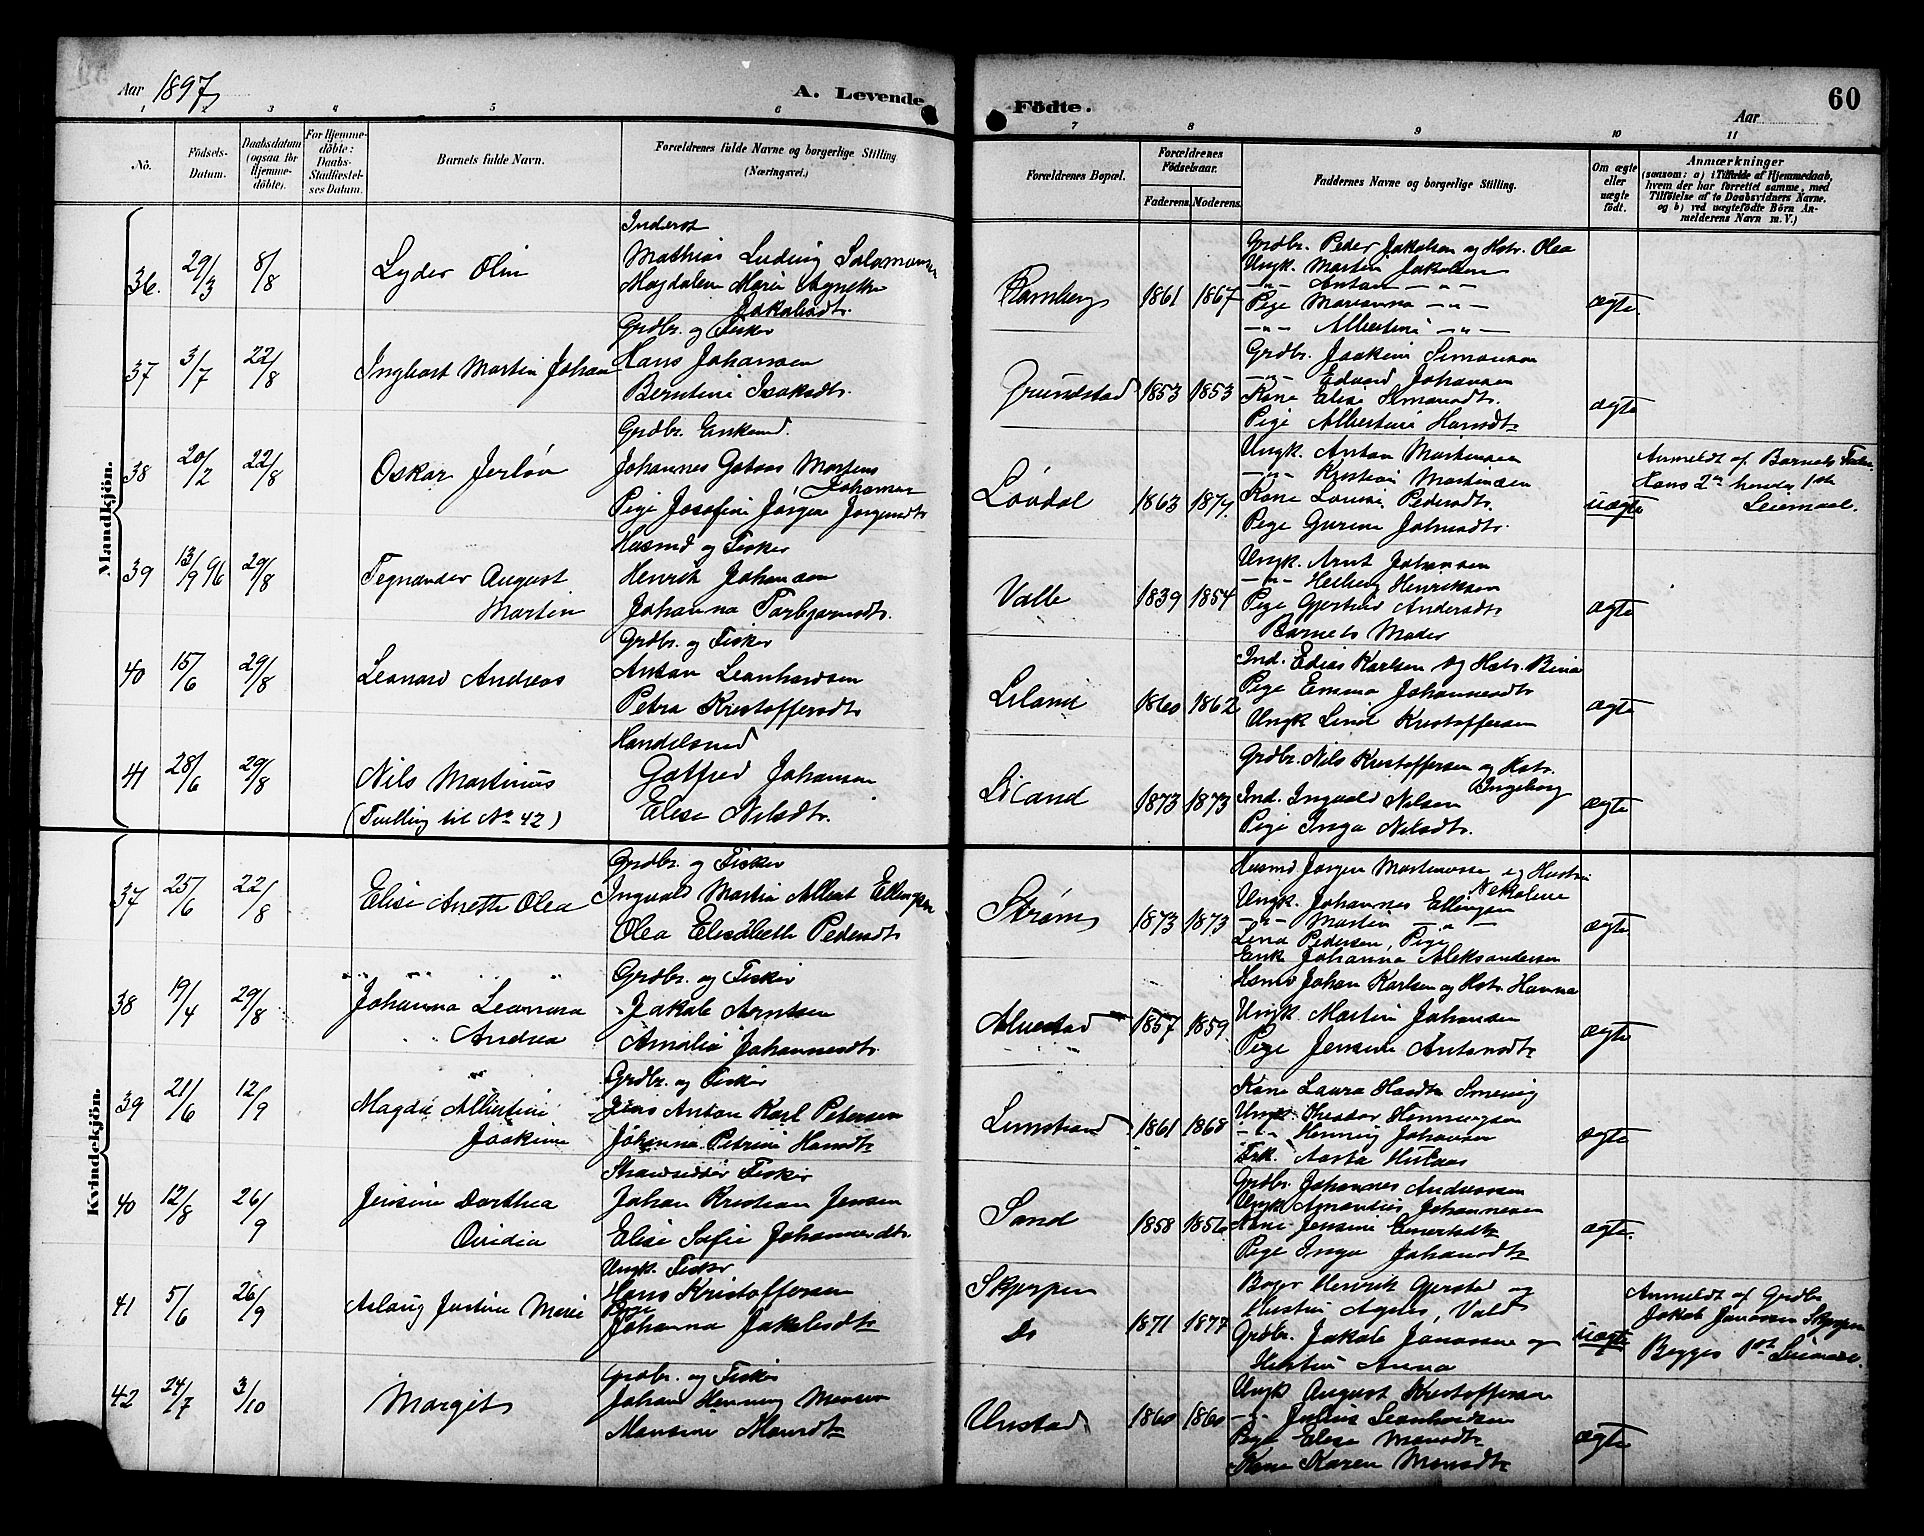 Aar 1897
A. Levende
Födte.
Aar
60
1 2 3 4 5 6 7 8 9 10 11
No.
Födsels-
Datum.
Daabsdatum
(ogsaa for
Hjemme-
döbte).
For Hjemme-
döbte:
Daabs-
Stadfæstel-
ses Datum.
Barnets fulde Navn.
Forældrenes fulde Navne og borgerlige Stilling
(Næringsvei.)
Forældrenes Bopæl.
Forældrenes
Födselsaar.
Faderens. Moderens.
Faddernes Navne og borgerlige Stilling.
Om ægte
eller
uægte
födt.
Anmærkninger
(saasom: a) i Tilfælde af Hjemmedaab,
hvem der har forrettet samme, med
Tilföielse af to Daabsvidners Navne.
og b) ved uægtefödte Börn An-
melderens Navn m. V.)
Mandkjön.
36. 29/3 8/8 Lyder Olin
Inderst
Mathias Ludvig Salamonsen
Magdalena Marie Agnethe
Jakobsdt.
Ramberg 1861 1867
Grdbr. Peder Jakobsen og Hstr. Olea
Ungk. Martin Jakobsen
-"- Antan -"-
Pige Marianna -"-
-"- Albertine -"-
ægte.
37 3/7 22/8 Ingvart Martin Johan
Grdbr. og Fisker
Hans Johansen
Berntine Isaksdt.
Grundstad 1853 1853
Grdbr. Joakim Simonsen
-"- Edvard Johansen
Kone Elise Simonsdt.
Pige Albertine Hansdt.
ægte
38 20/2 22/8 Oskar Jerløv
Grdbr. Enkemd.
Johannes Gabous Martens
Johansen
Pige Josefine Jørgine Jørgensdt.
Løvdal 1863 1874
Ungk. Antan Martinsen
-"- Kristian Martinsen
Kone Lovise Pedersdt.
Pige Gurine Johnsdt.
uægte
Anmeldt af Barnets Fader
Hans 2det hendes 1ste
Leiemaal.
39 13/9 96 29/8 Tegnander August
Martin
Husmd og Fisker
Henrik Johansen
Johanna Torbjørnsdt.
Valle 1839 1854
Ungk. Arnt Johansen
-"- Hedberg Henriksen
Pige Gjertrud Andersdt.
Barnets Moder
ægte
40 15/6 29/8 Leonard Andreas
Grdbr. og Fisker
Antan Leonhardsen
Petra Kristoffersdt.
Liland 1860 1862
Ind. Edias Karlsen og Hstr. Bina
Pige Emma Johannesdt.
Ungk Lind Kristoffersen
ægte
41 28/6 29/8 Nils Martinus
(Tvilling til No 42)
Handelsmd
Gotfred Johansen
Elise Nilsdt.
Liland 1873 1873
Grdbr. Nils Kristoffersen og Hstr.
Ingeborg
Ind. Ingvald Nilsen
Pige Inga Nilsdt.
ægte
Kvindekjön.
37 25/6 22/8 Elise Anette Olea
Grdbr. og Fisker
Ingvald Martin Albert Ellingsen
Olea Elisabeth Pedersdt.
Strøm 1873 1873
Husmd Jørgen Mortensen og Hustru
Nekoline
Ungk. Johannes Ellingsen
-"- Martin -"-
Lina Pedersen, Pige
Enke Johanna Aleksandersen
ægte
38 19/4 29/8 Johanna Leonora
Andrea
Grdbr. og Fisker
Jakob Arntsen
Amalia Johannesdt.
Alvestad 1857 1859
Husmd Johan Karlsen og Hstr. Hanna
Ungk. Martin Johansen
Pige Jensine Antonsdt.
ægte
39 21/6 12/9 Magda Albertine
Joakine
Grdbr. og Fisker
Jens Antan Karl Petersen
Johanna Petrine Hansdt.
Limstrand 1861 1868
Kone Laura Hansdt. Smevig
Ungk. Theodor Henningsen
-"- Henning Johansen
Frk. Aasta Hustaas
ægte
40 12/8 26/9 Jensine Dorthea
Ovidia
Strandsidder Fisker
Johan Kristian Jensen
Elise Sofie Johannesdt.
Sand 1858 1856
Grdbr. Johannes Andreassen
Ungk Amandus Johannesen
Kone Jensine Einertsdt.
Pige Inga Johansdt.
ægte.
41 5/6 26/9 Aslaug Justine Marie
Ungk. Fisker
Hans Kristoffersen
Pige
Johanna Jakobsdt.
Skjerpen
Do 1871 1877
Boger Henrik Gjerstad og
Hustru Agnes, Vold
Grdbr. Jakob Jonassen og
Hustru Anna
uægte
Anmeldt af Grdbr
Jakob Jonassen Skjerpen
Begges 1ste Leiemaal.
42 24/7 3/10 Margit
Grdbr. og Fisker
Johan Henning Monsen
Monsine Monsdt.
Unstad 1860 1860
Ungk August Kristoffersen
-"- Julius Leonhardsen
Pige Elise Monsdt.
Kone Karen Monsdt.
ægte